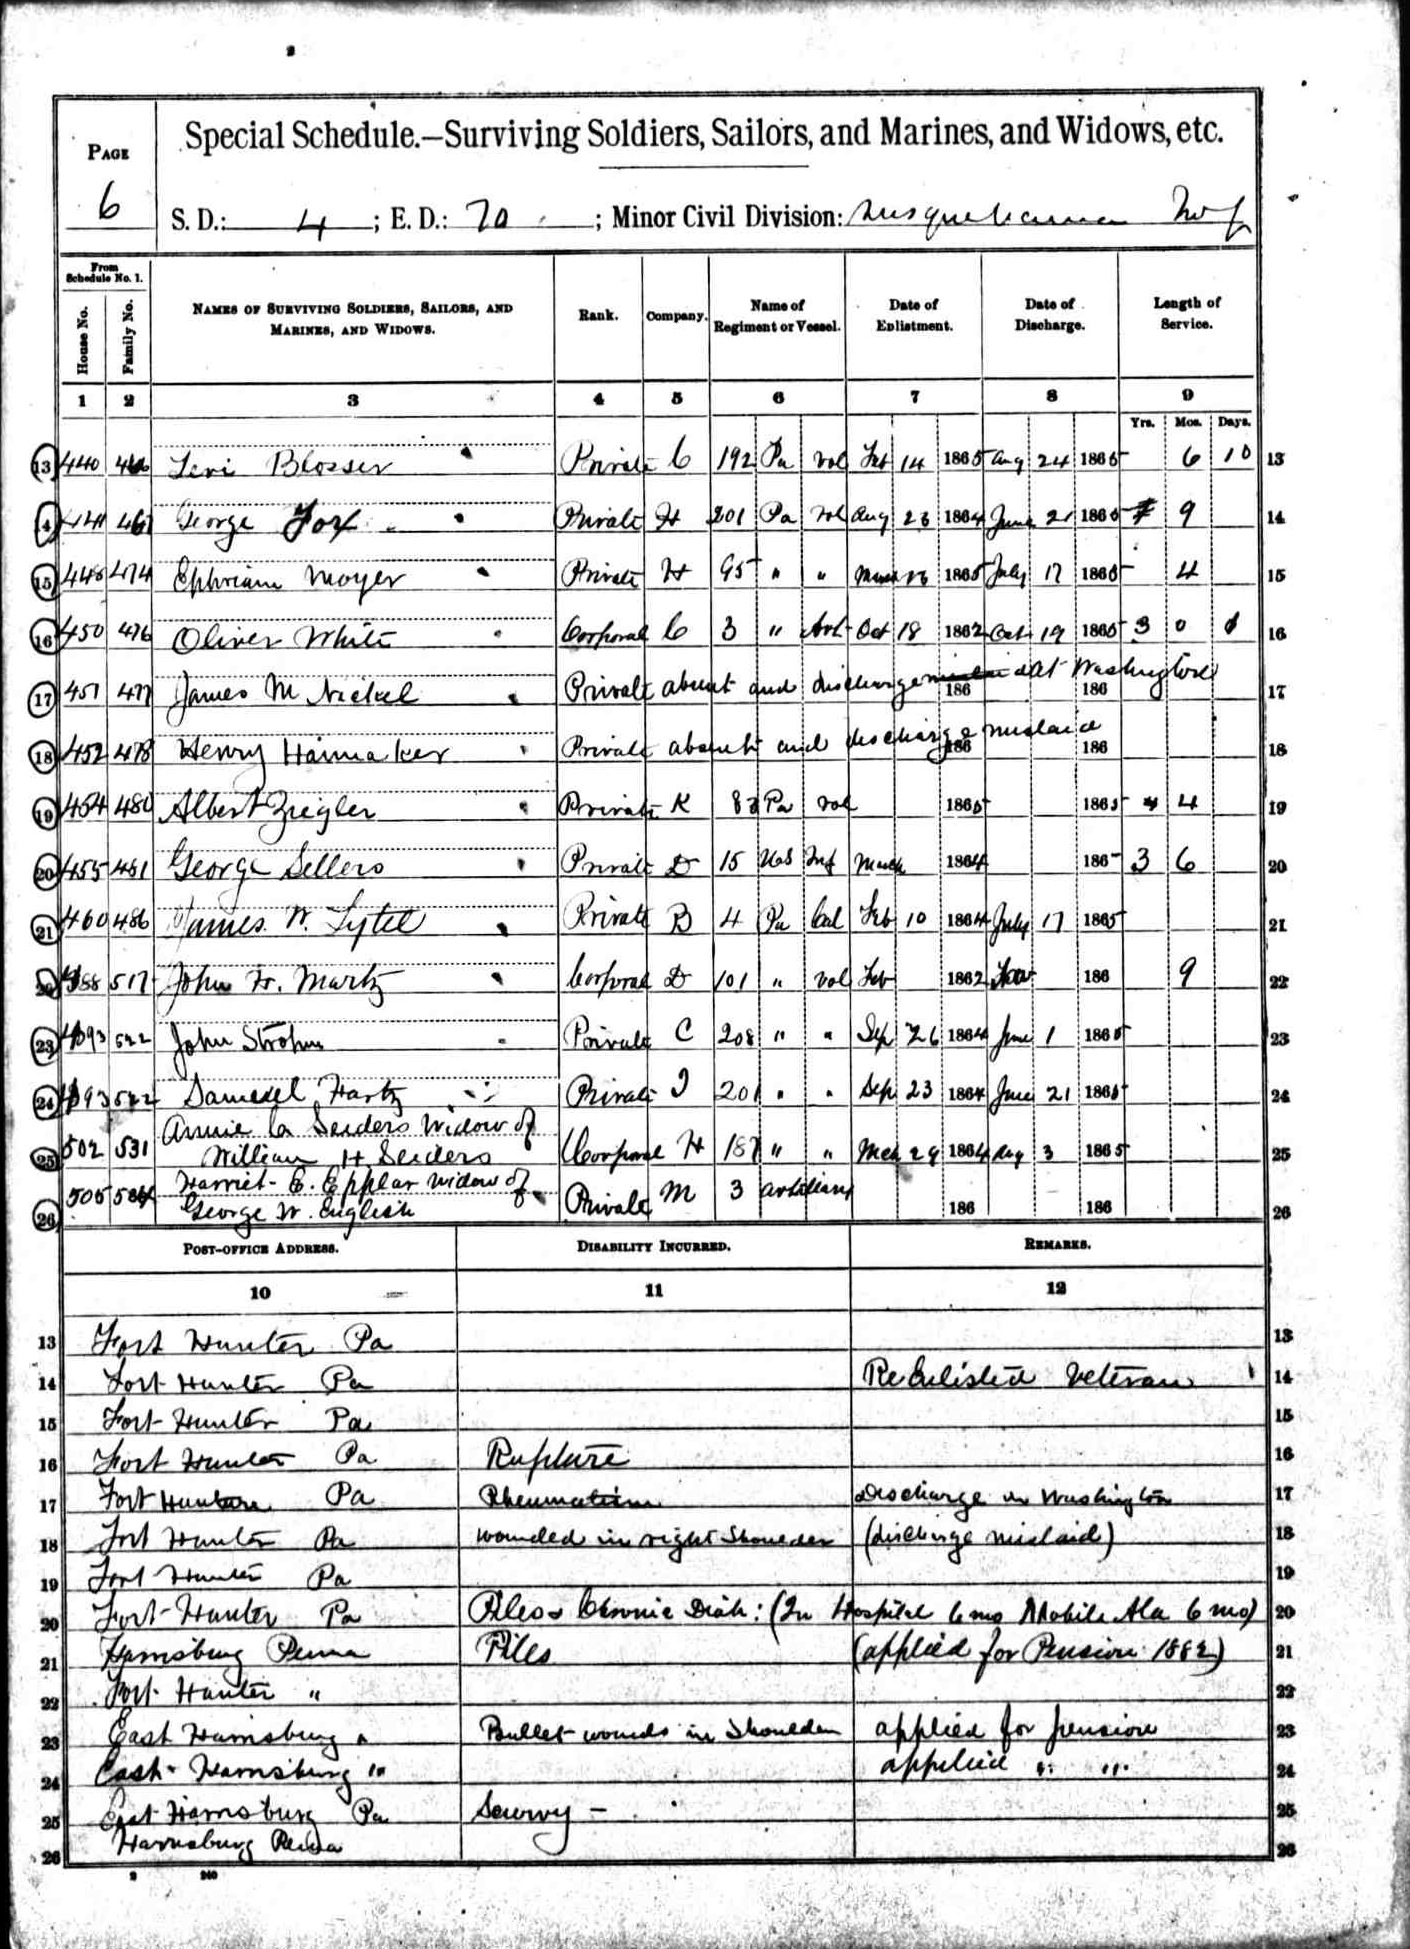 PAGE
6
Special Schedule.—Surviving Soldiers, Sailors, and Marines, and Widows, etc.
S. D.: 4 ; E. D.: 70 ; Minor Civil Division: Susquehanna Twp
From Schedule No. 1.
House No. Family No. NAMES OF SURVIVING SOLDIERS, SAILORS, AND MARINES, AND WIDOWS. Rank. Company. Name of Regiment or Vessel. Date of Enlistment. Date of Discharge. Length of Service.
1 2 3 4 5 6 7 8 9
Yrs. Mos. Days.
13 440 466 Levi Blosser Private C 192 Pa vol Feb 14 1865 Aug 24 1865 6 10 13
4 441 467 George Fox Private H 201 Pa Vol Aug 23 1864 June 21 1865 9 14
15 448 474 Ephriam Moyer Private H 95 " " March 1865 July 17 1865 4 15
16 450 476 Oliver White Corporal C 3 " Art Oct 18 1862 Oct 19 1865 3 0 1 16
17 451 477 James M Nickel Private absent and discharge at Washington 186 186 17
18 452 478 Henry Hamaker Private absent and discharge mislaid 186 186 18
19 454 480 Albert Ziegler Private K 83 Pa vol 1865 1865 4 19
20 455 481 George Sellers Private D 15 US Inf March 1864 186 3 6 20
21 460 486 James W. Lytel Private B 4 Pa Cal Feb 10 1864 July 17 1865 21
488 517 John W. Martz Corporal D 101 " vol Feb 1862 186 9 22
23 493 522 John Strohm Private C 208 " " Sep 26 1864 June 1 1865 23
24 493 522 Samuel Hartz Private I 201 " " Sep 23 1864 June 21 1865 24
Annie Seiders Widow of
25 502 531 William H Seiders Corporal H 187 " " Mch 29 1864 Aug 3 1865 25
Harriet E. Epplar widow of
26 505 534 George W. English Private M 3 artiliary 186 186 26
POST-OFFICE ADDRESS. DISABILITY INCURRED. REMARKS.
10 11 12
13 Fort Hunter Pa 13
14 Fort Hunter Pa Re Enlisted Veteran 14
15 Fort Hunter Pa 15
16 Fort Hunter Pa Rupture 16
17 Fort Hunter Pa Rheumatism Discharge in Washington 17
18 Fort Hunter Pa wounded in right Shoulder (discharge mislaid) 18
19 Fort Hunter Pa 19
20 Fort Hunter Pa Piles & Chronic Diah: (In Hospital 6 mo Mobile Ala 6 mo) 20
21 Harrisburg Penna Piles (applied for Pension 1882) 21
22 Fort Hunter " 22
23 East Harrisburg " Bullet wounds in Shoulder applied for pension 23
24 East Harrisburg " applied " " 24
25 East Harrisburg Pa Scurvy – 25
26 Harrisburg Penna 26